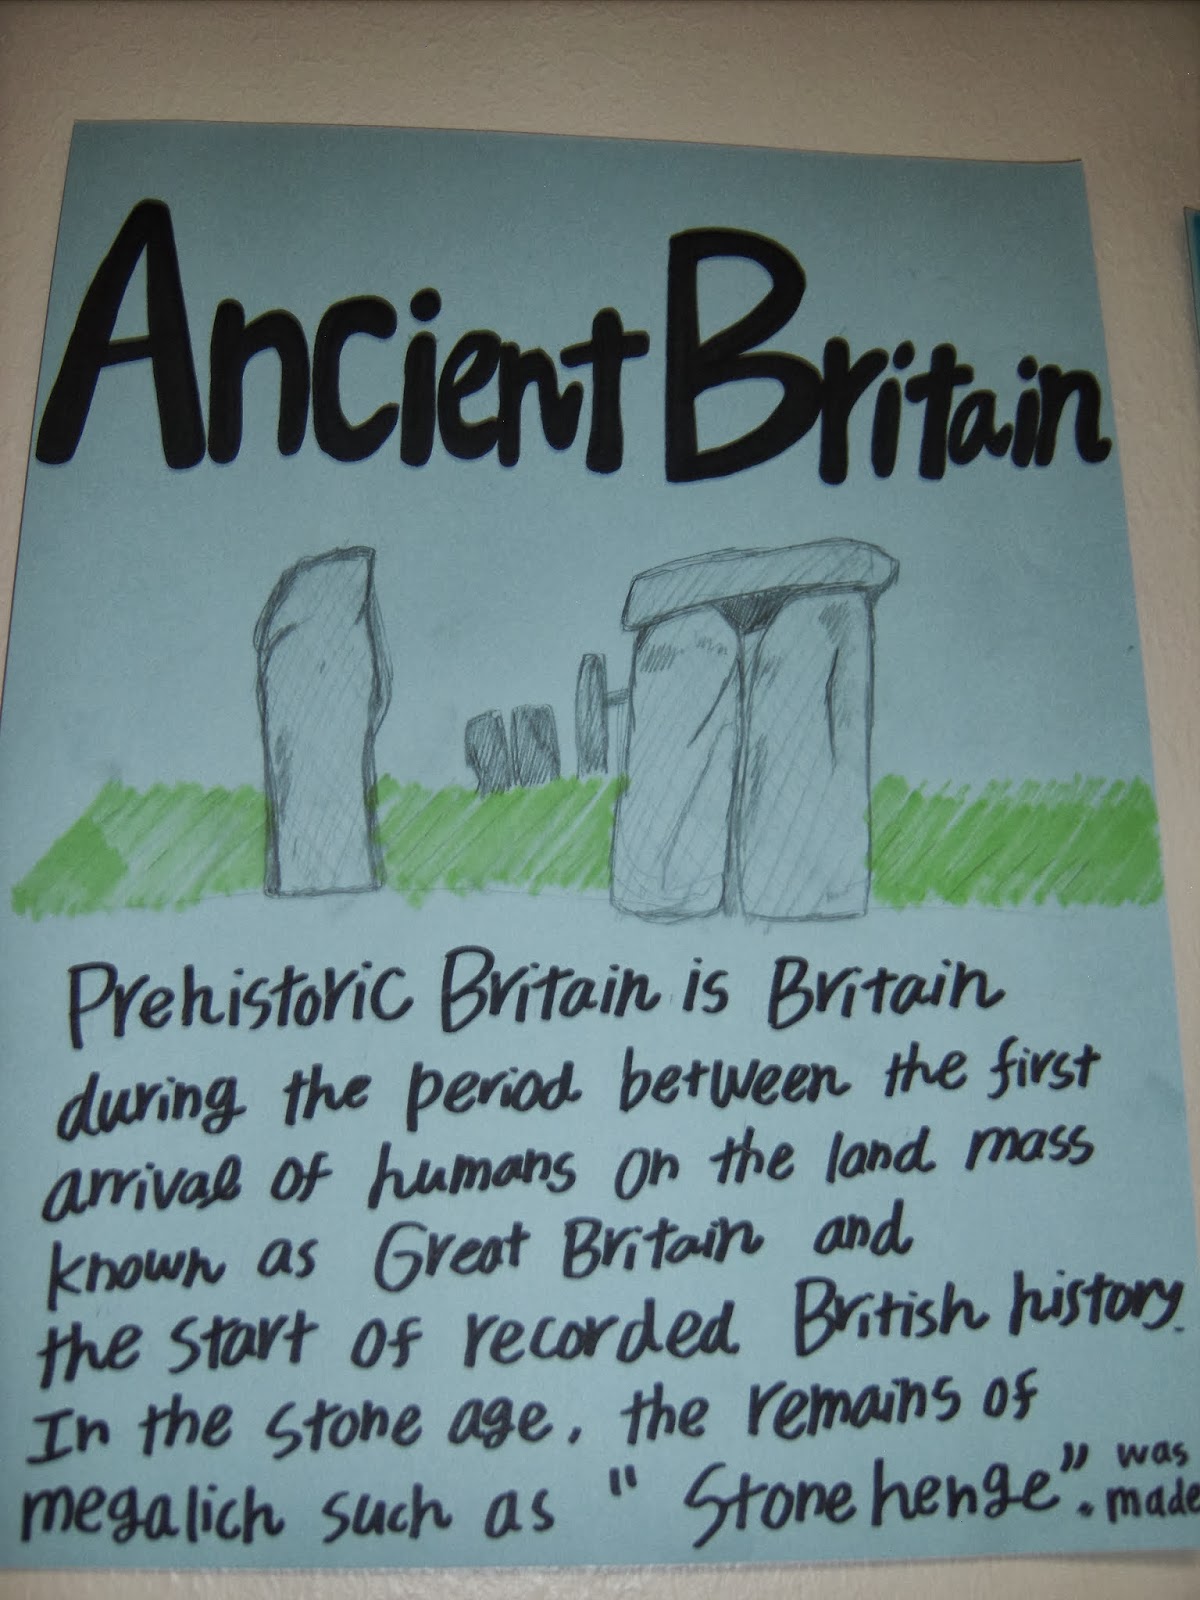 Ancient Britain
Prehistoric Britain is Britain
during the period between the first
arrival of humans on the land mass
known as Great Britain and
the start of recorded British history.
In the stone age, the remains of
megalich such as "Stonehenge". was
made